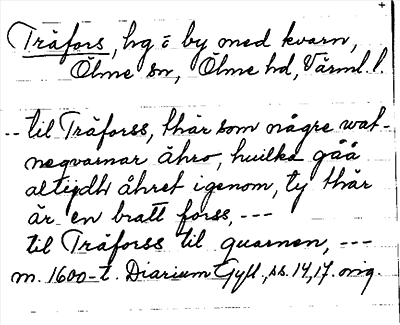 Träfors, hg o by med kvarn,
Ölme sn, Ölme hd, Värml. l.
-- til Träforss, thär som någre wat-
neqvarnar ähro, huilka gåå
altijdh åhret igenom, ty thär
är en bratt forss, ---
til Träforss til quarnen, ---
m. 1600-t. Diarium Gyll., ss. 14, 17. orig.